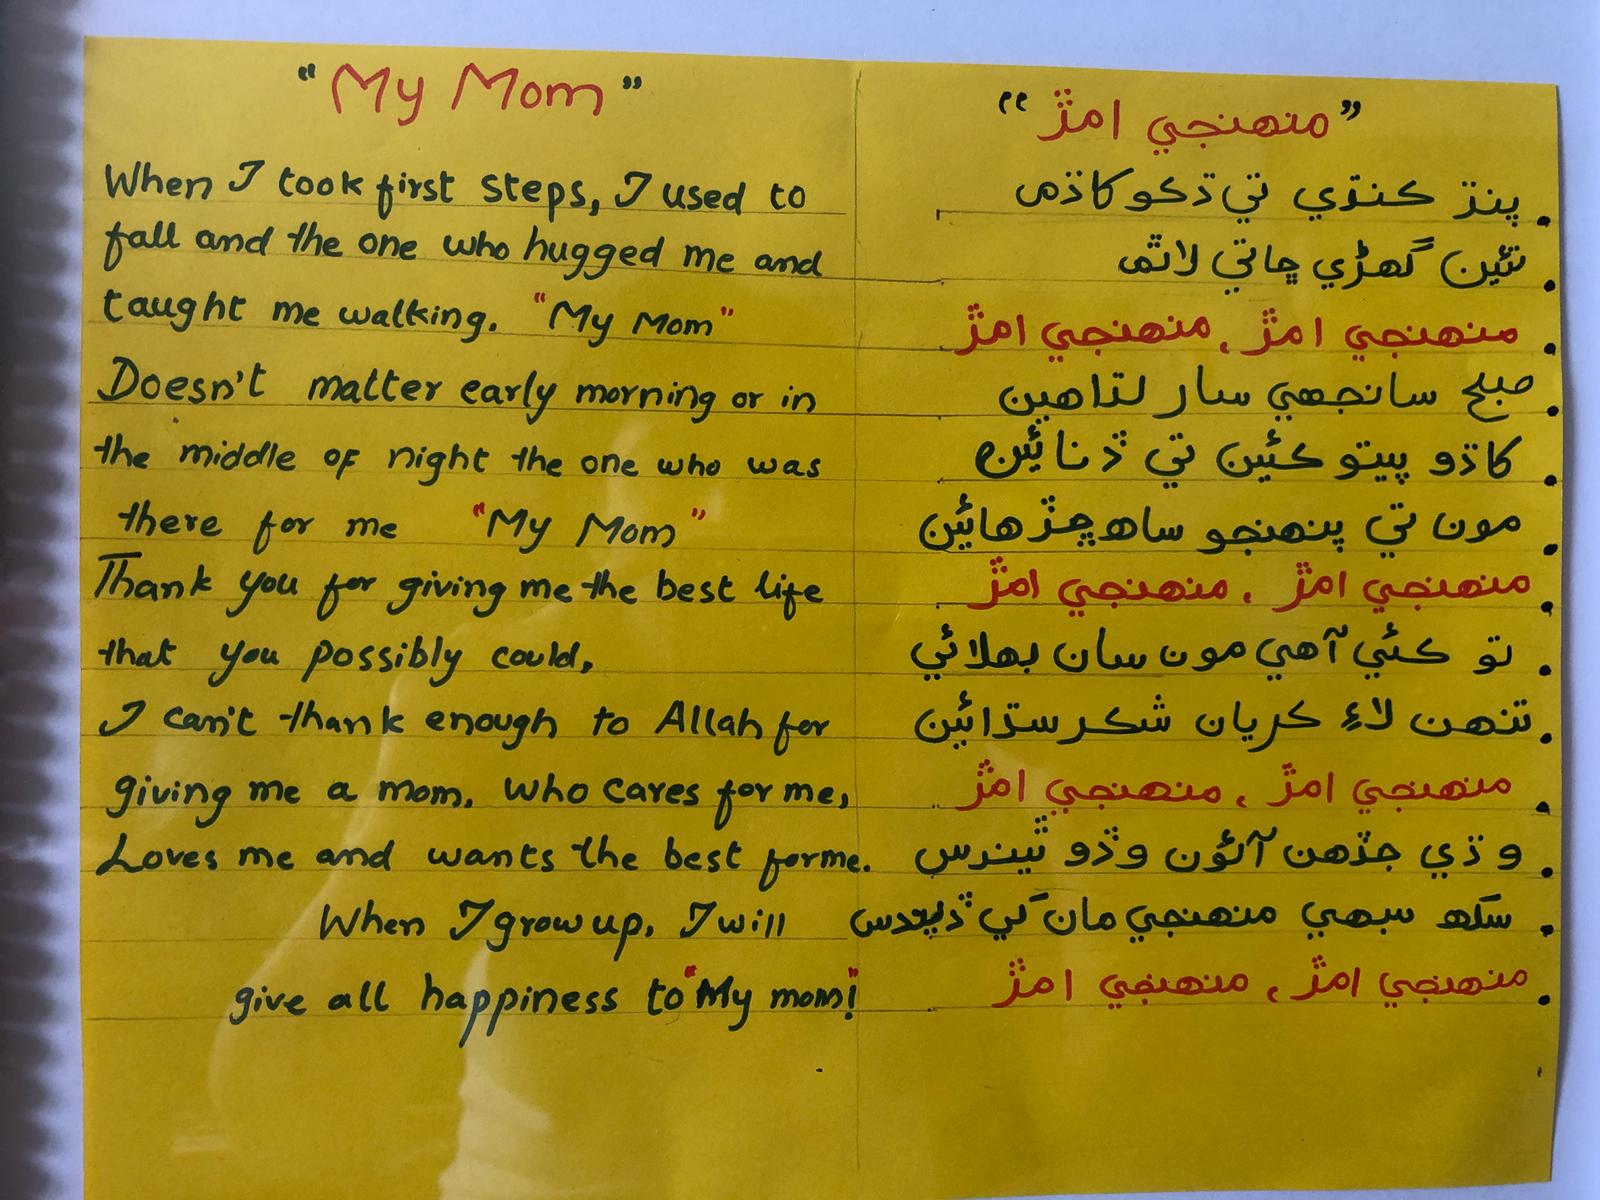 "My Mom"
When I took first steps, I used to
fall and the one who hugged me and
taught me walking. "My Mom"
Doesn't matter early morning or in
the middle of night the one who was
there for me "My Mom"
Thank you for giving me the best life
that you possibly could,
I can't thank enough to Allah for
giving me a mom, who cares for me,
Loves me and wants the best for me.
When I grow up, I will
give all happiness to "My mom!"
"منهنجي امڙ"
پنڌ ڪندي ٿي ڌڪو کاڌم
تئين گهڙي ڇاتي لاٿم
منهنجي امڙ، منهنجي امڙ
صبح سانجهي سار لڌاهين
کاڌو پيتو ڪئين ٿي ڏنائين
مون تي پنهنجو ساهه ڇڏهائين
منهنجي امڙ، منهنجي امڙ
تو ڪئي آهي مون سان ڀلائي
تنهن لاءِ ڪريان شڪر سدائين
منهنجي امڙ، منهنجي امڙ
وڌي جڏهن آئون وڏو ٿيندس
سک سڀهي منهنجي مان کي ڏيندس
منهنجي امڙ، منهنجي امڙ